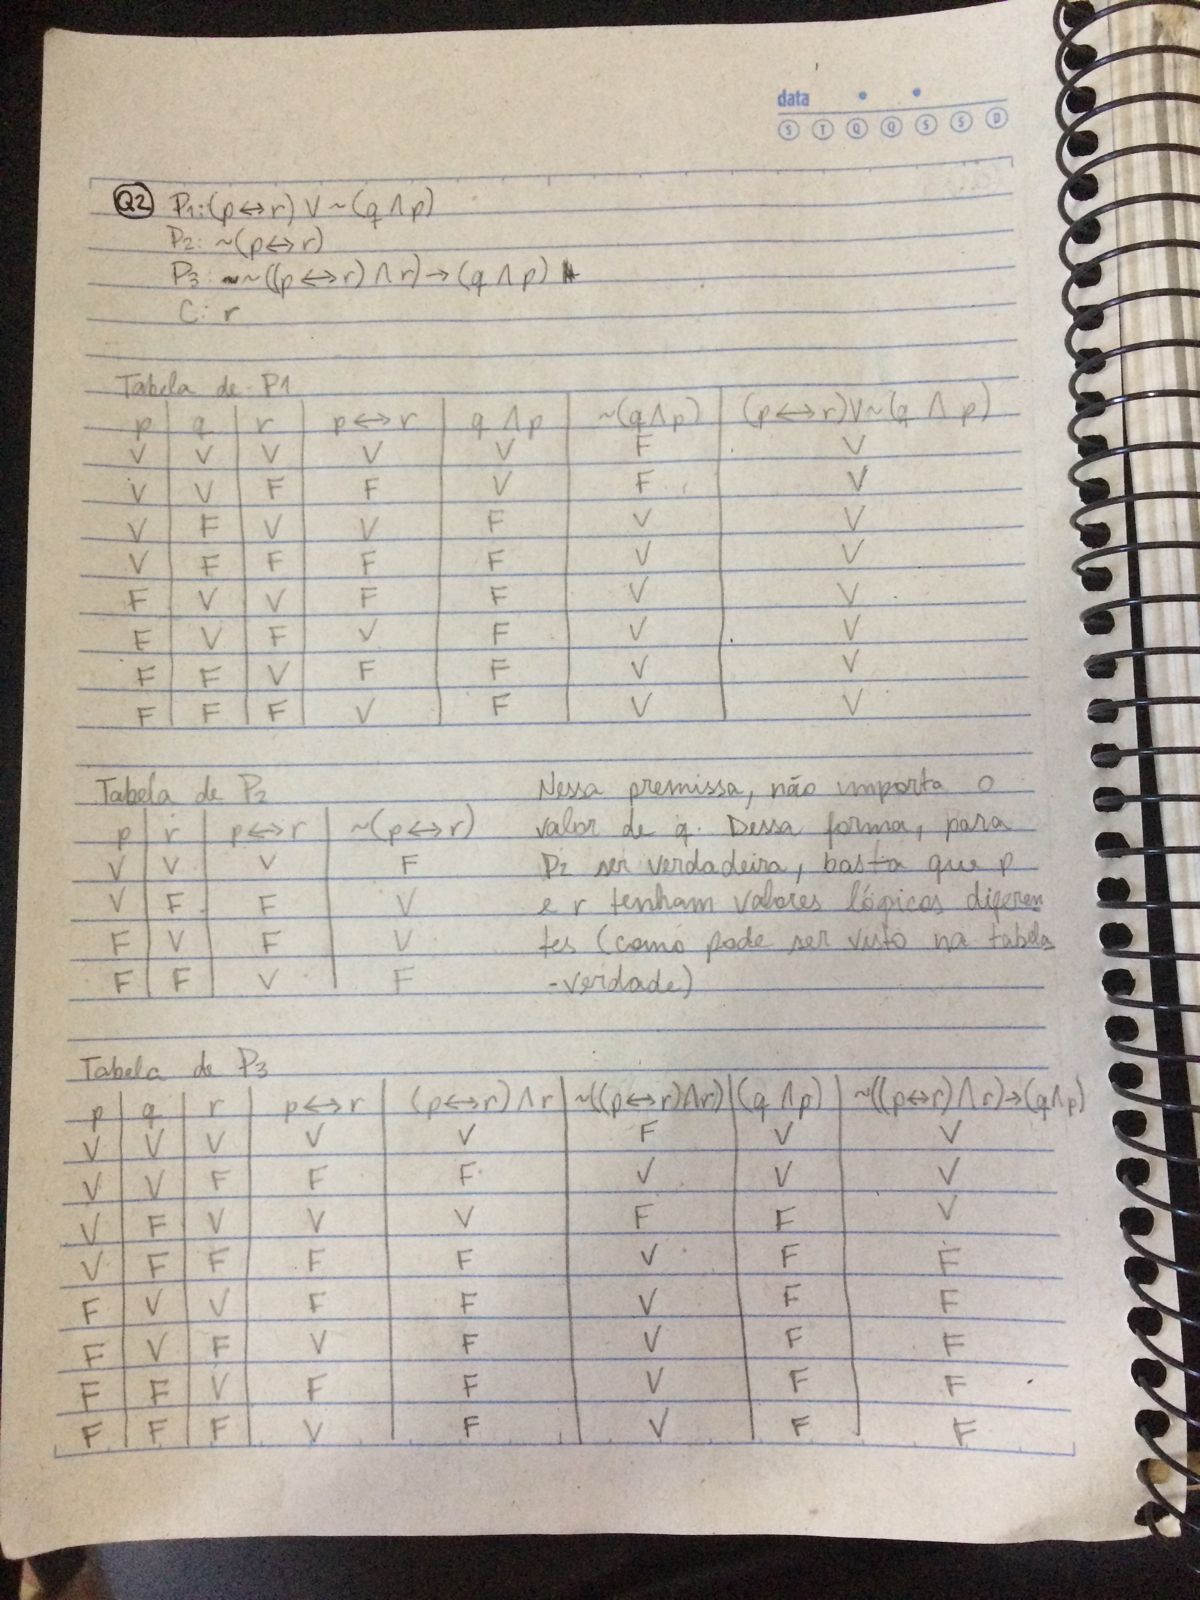 data
S T Q Q S S D
Q2 P1: (p ↔ r) V ~(q ∧ p)
P2: ~(p ↔ r)
P3: ~~((p ↔ r) ∧ r) → (q ∧ p)
C: r
Tabela de P1
p q r p ↔ r q ∧ p ~(q ∧ p) (p ↔ r) V ~(q ∧ p)
V V V V V F V
V V F F V F V
V F V V F V V
V F F F F V V
F V V F F V V
F V F V F V V
F F V F F V V
F F F V F V V
Tabela de P2
p r p ↔ r ~(p ↔ r)
V V V F
V F F V
F V F V
F F V F
Nessa premissa, não importa o
valor de q. Dessa forma, para
P2 ser verdadeira, basta que p
e r tenham valores lógicos diferen
tes (como pode ser visto na tabela
-verdade)
Tabela de P3
p q r p ↔ r (p ↔ r) ∧ r ~((p ↔ r) ∧ r) (q ∧ p) ~((p ↔ r) ∧ r) → (q ∧ p)
V V V V V F V V
V V F F F V V V
V F V V V F F V
V F F F F V F F
F V V F F V F F
F V F V F V F F
F F V F F V F F
F F F V F V F F